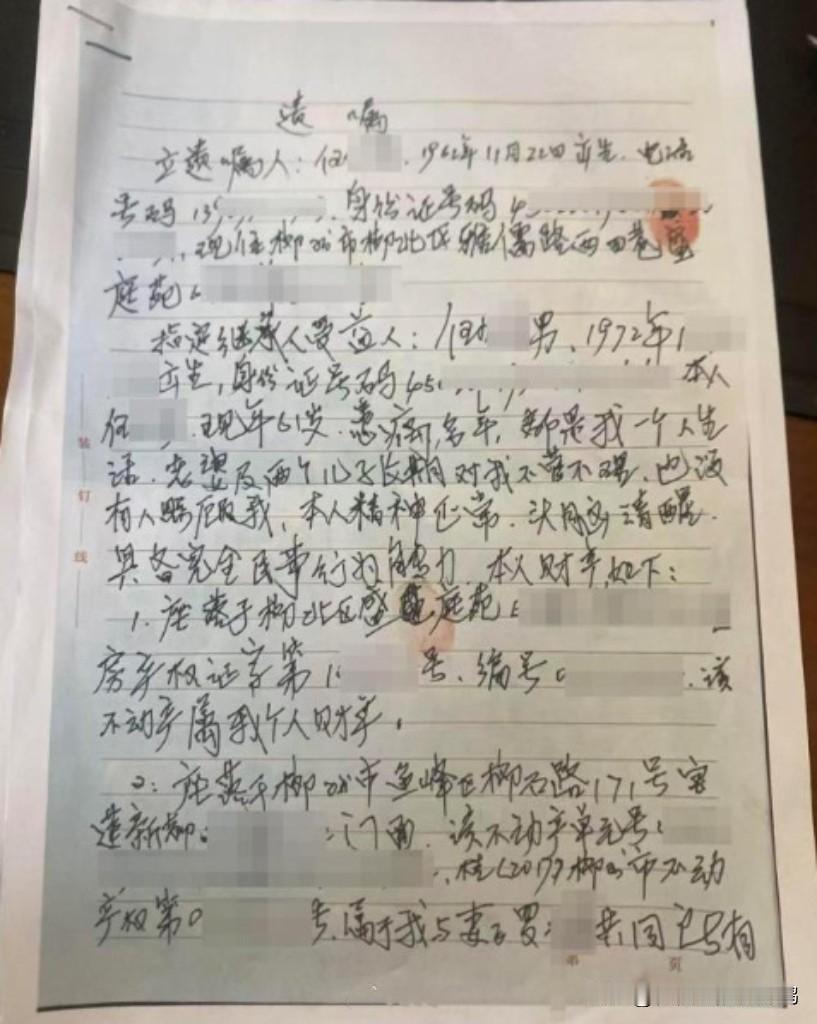 遗嘱
立遗嘱人：任 ，1962年11月22日出生，电话
号码139 ，身份证号码4
，现住柳州市柳北区雅儒路西四巷盛
庭苑
指定继承人受益人：任 男，1972年1
出生，身份证号码45 本人
任 ，现年61岁，患病多年，都是我一个人生
活，老婆及两个儿子长期对我不管不理，也没
有人照顾我，本人精神正常，头脑清醒，
具备完全民事行为能力，本人财产如下：
1、座落于柳北区盛 庭苑
房产权证字第1 号，编号0 ，该
不动产属我个人财产。
2：座落于柳州市鱼峰区柳石路171号
新柳 门面，该不动产单元号：
，桂（2017）柳州市不动
产权第0 号，属于我与妻子罗 共同
装
订
线
第 页